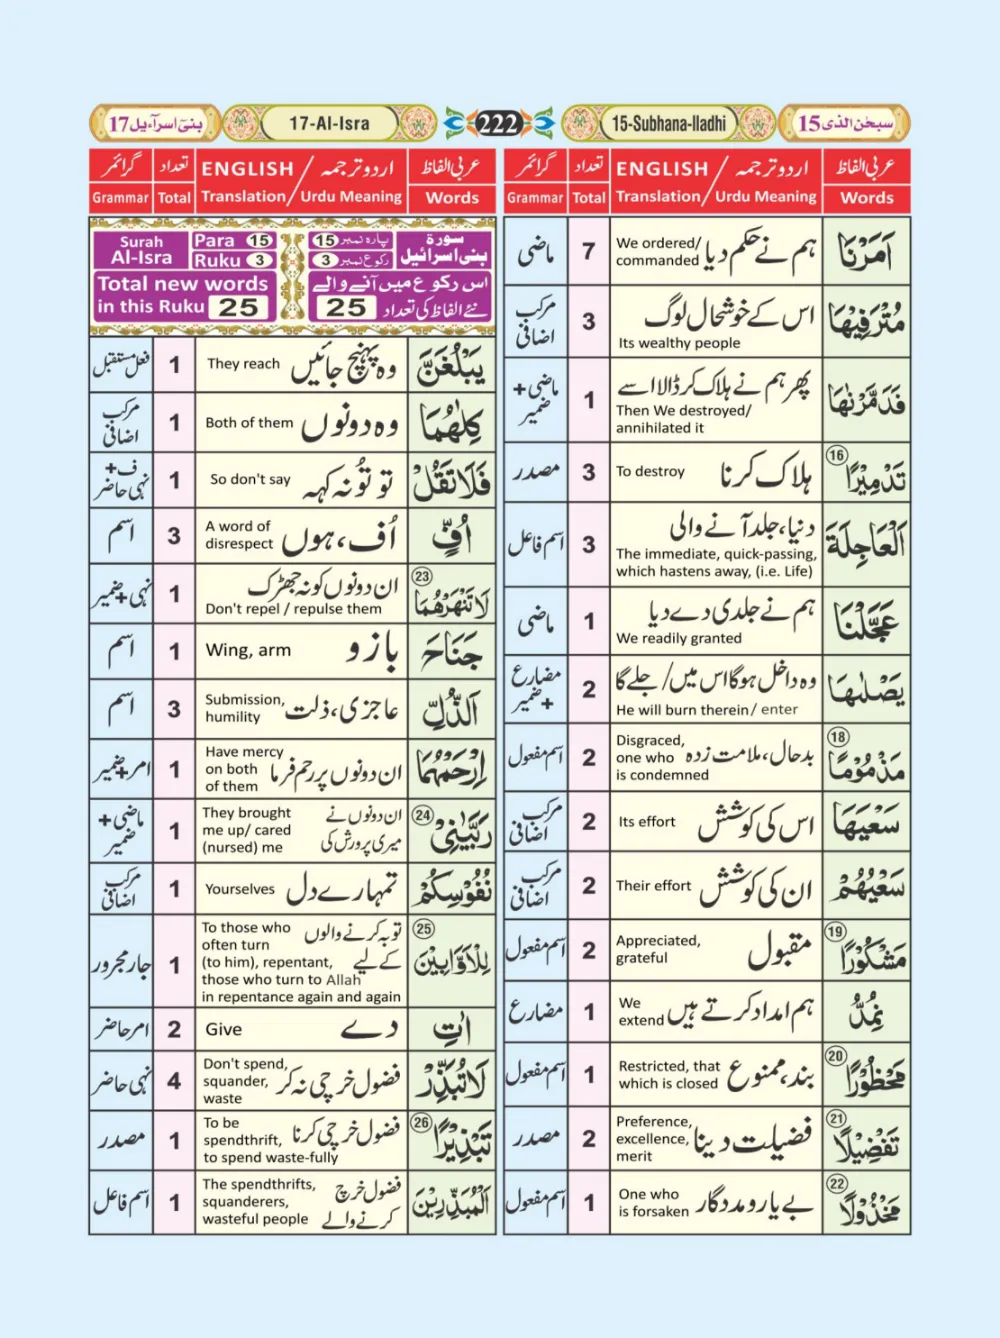 بنیٓ اسرآءیل 17
17-Al-Isra
222
15-Subhana-lladhi
سبحٰن الذی 15
عربی الفاظ
اردو ترجمہ / ENGLISH
تعداد
گرائمر
Words
Translation / Urdu Meaning
Total
Grammar
اَمَرْنَا
ہم نے حکم دیا
We ordered/
commanded
7
ماضی
مُتْرَفِيْهَا
اس کے خوشحال لوگ
Its wealthy people
3
مرکب
اضافی
فَدَمَّرْنٰهَا
پھر ہم نے ہلاک کر ڈالا اسے
Then We destroyed/
annihilated it
1
ماضی +
ضمیر
تَدْمِيْرًا 16
ہلاک کرنا
To destroy
3
مصدر
اَلْعَاجِلَةَ
دنیا، جلد آنے والی
The immediate, quick-passing,
which hastens away, (i.e. Life)
3
اسم فاعل
عَجَّلْنَا
ہم نے جلدی دے دیا
We readily granted
1
ماضی
يَصْلٰىهَا
وہ داخل ہوگا اس میں/ جلے گا
He will burn therein/ enter
2
مضارع
+ ضمیر
مَذْمُوْمًا 18
بدحال، ملامت زدہ
Disgraced,
one who
is condemned
2
اسم مفعول
سَعْيَهَا
اس کی کوشش
Its effort
2
مرکب
اضافی
سَعْيُهُمْ
ان کی کوشش
Their effort
2
مرکب
اضافی
مَشْكُوْرًا 19
مقبول
Appreciated,
grateful
2
اسم مفعول
نُمِدُّ
ہم امداد کرتے ہیں
We
extend
1
مضارع
مَحْظُوْرًا 20
بند، ممنوع
Restricted, that
which is closed
1
اسم مفعول
تَفْضِيْلًا 21
فضیلت دینا
Preference,
excellence,
merit
2
مصدر
مَخْذُوْلًا 22
بے یار و مددگار
One who
is forsaken
1
اسم مفعول
عربی الفاظ
اردو ترجمہ / ENGLISH
تعداد
گرائمر
Words
Translation / Urdu Meaning
Total
Grammar
Surah
Al-Isra
Para 15
Ruku 3
پارہ نمبر 15
رکوع نمبر 3
سورة
بنی اسرائیل
Total new words
in this Ruku 25
اس رکوع میں آنے والے
نئے الفاظ کی تعداد 25
يَبْلُغَنَّ
وہ پہنچ جائیں
They reach
1
فعل مستقبل
كِلٰهُمَا
وہ دونوں
Both of them
1
مرکب
اضافی
فَلَا تَقُلْ
تو تُو نہ کہہ
So don't say
1
ف+
نہی حاضر
اُفٍّ
اُف، ہوں
A word of
disrespect
3
اسم
لَا تَنْهَرْهُمَا 23
ان دونوں کو نہ جھڑک
Don't repel / repulse them
1
نہی+ضمیر
جَنَاحَ
بازو
Wing, arm
1
اسم
اَلذُّلِّ
عاجزی، ذلت
Submission,
humility
3
اسم
اِرْحَمْهُمَا
ان دونوں پر رحم فرما
Have mercy
on both
of them
1
امر+ضمیر
رَبَّيٰنِيْ 24
ان دونوں نے
میری پرورش کی
They brought
me up/ cared
(nursed) me
1
ماضی +
ضمیر
نُفُوْسِكُمْ
تمہارے دل
Yourselves
1
مرکب
اضافی
لِلْاَوَّابِيْنَ 25
توبہ کرنے والوں
کے لیے
To those who
often turn
(to him), repentant,
those who turn to Allah
in repentance again and again
1
جار مجرور
اٰتِ
دے
Give
2
امر حاضر
لَا تُبَذِّرْ
فضول خرچی نہ کر
Don't spend,
squander,
waste
4
نہی حاضر
تَبْذِيْرًا 26
فضول خرچی کرنا
To be
spendthrift,
to spend waste-fully
1
مصدر
اَلْمُبَذِّرِيْنَ
فضول خرچ
کرنے والے
The spendthrifts,
squanderers,
wasteful people
1
اسم فاعل